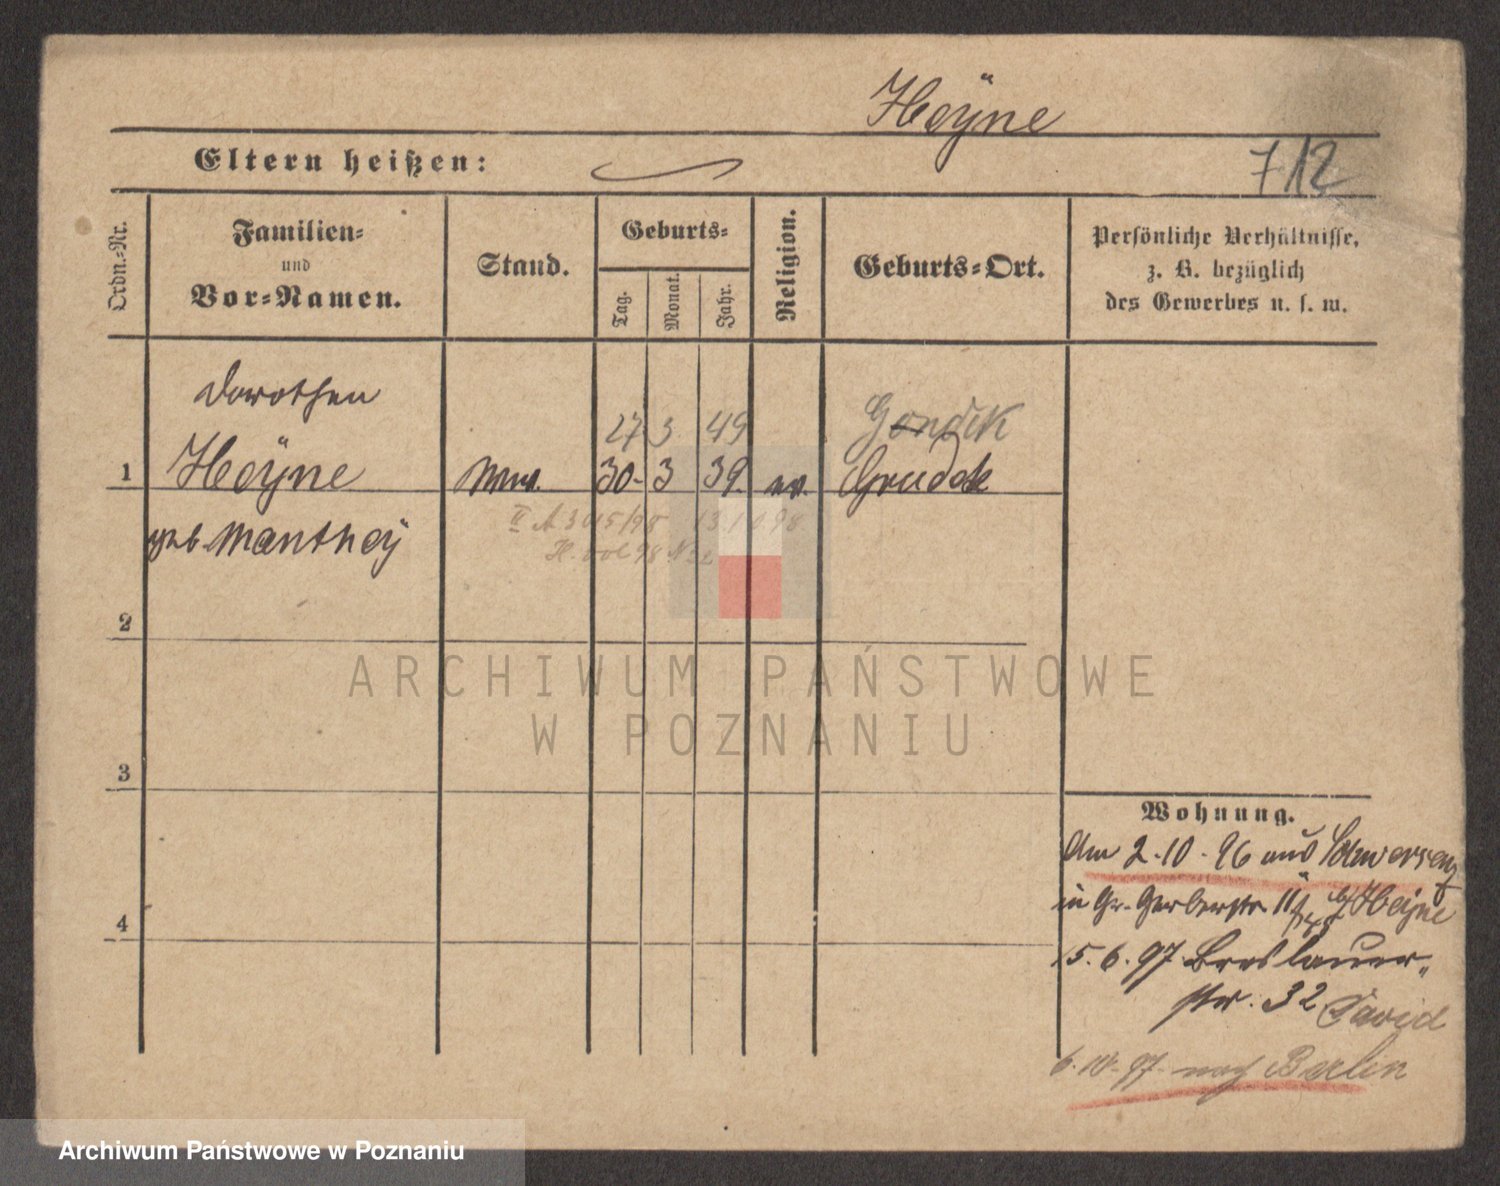 Heÿne
Eltern heißen:
712
Ordn.-Nr.
Familien-
und
Vor-Namen.
Stand.
Geburts-
Tag.
Monat.
Jahr.
Religion.
Geburts-Ort.
Persönliche Verhältnisse,
z. B. bezüglich
des Gewerbes u. s. w.
Dorothea
27 3 49
1 Heÿne Ww. 30. 3 39. ev.
geb. Mantheÿ
II A 3 13.10.98
2
ARCHIWUM PAŃSTWOWE
W POZNANIU
3
Wohnung.
Am 2.10.96 aus Schwersenz
in Gr. Gerberstr 11 Heÿne
15.6.97 Breslauer-
str. 32 David
4
6.10.97 nach Berlin
Archiwum Państwowe w Poznaniu